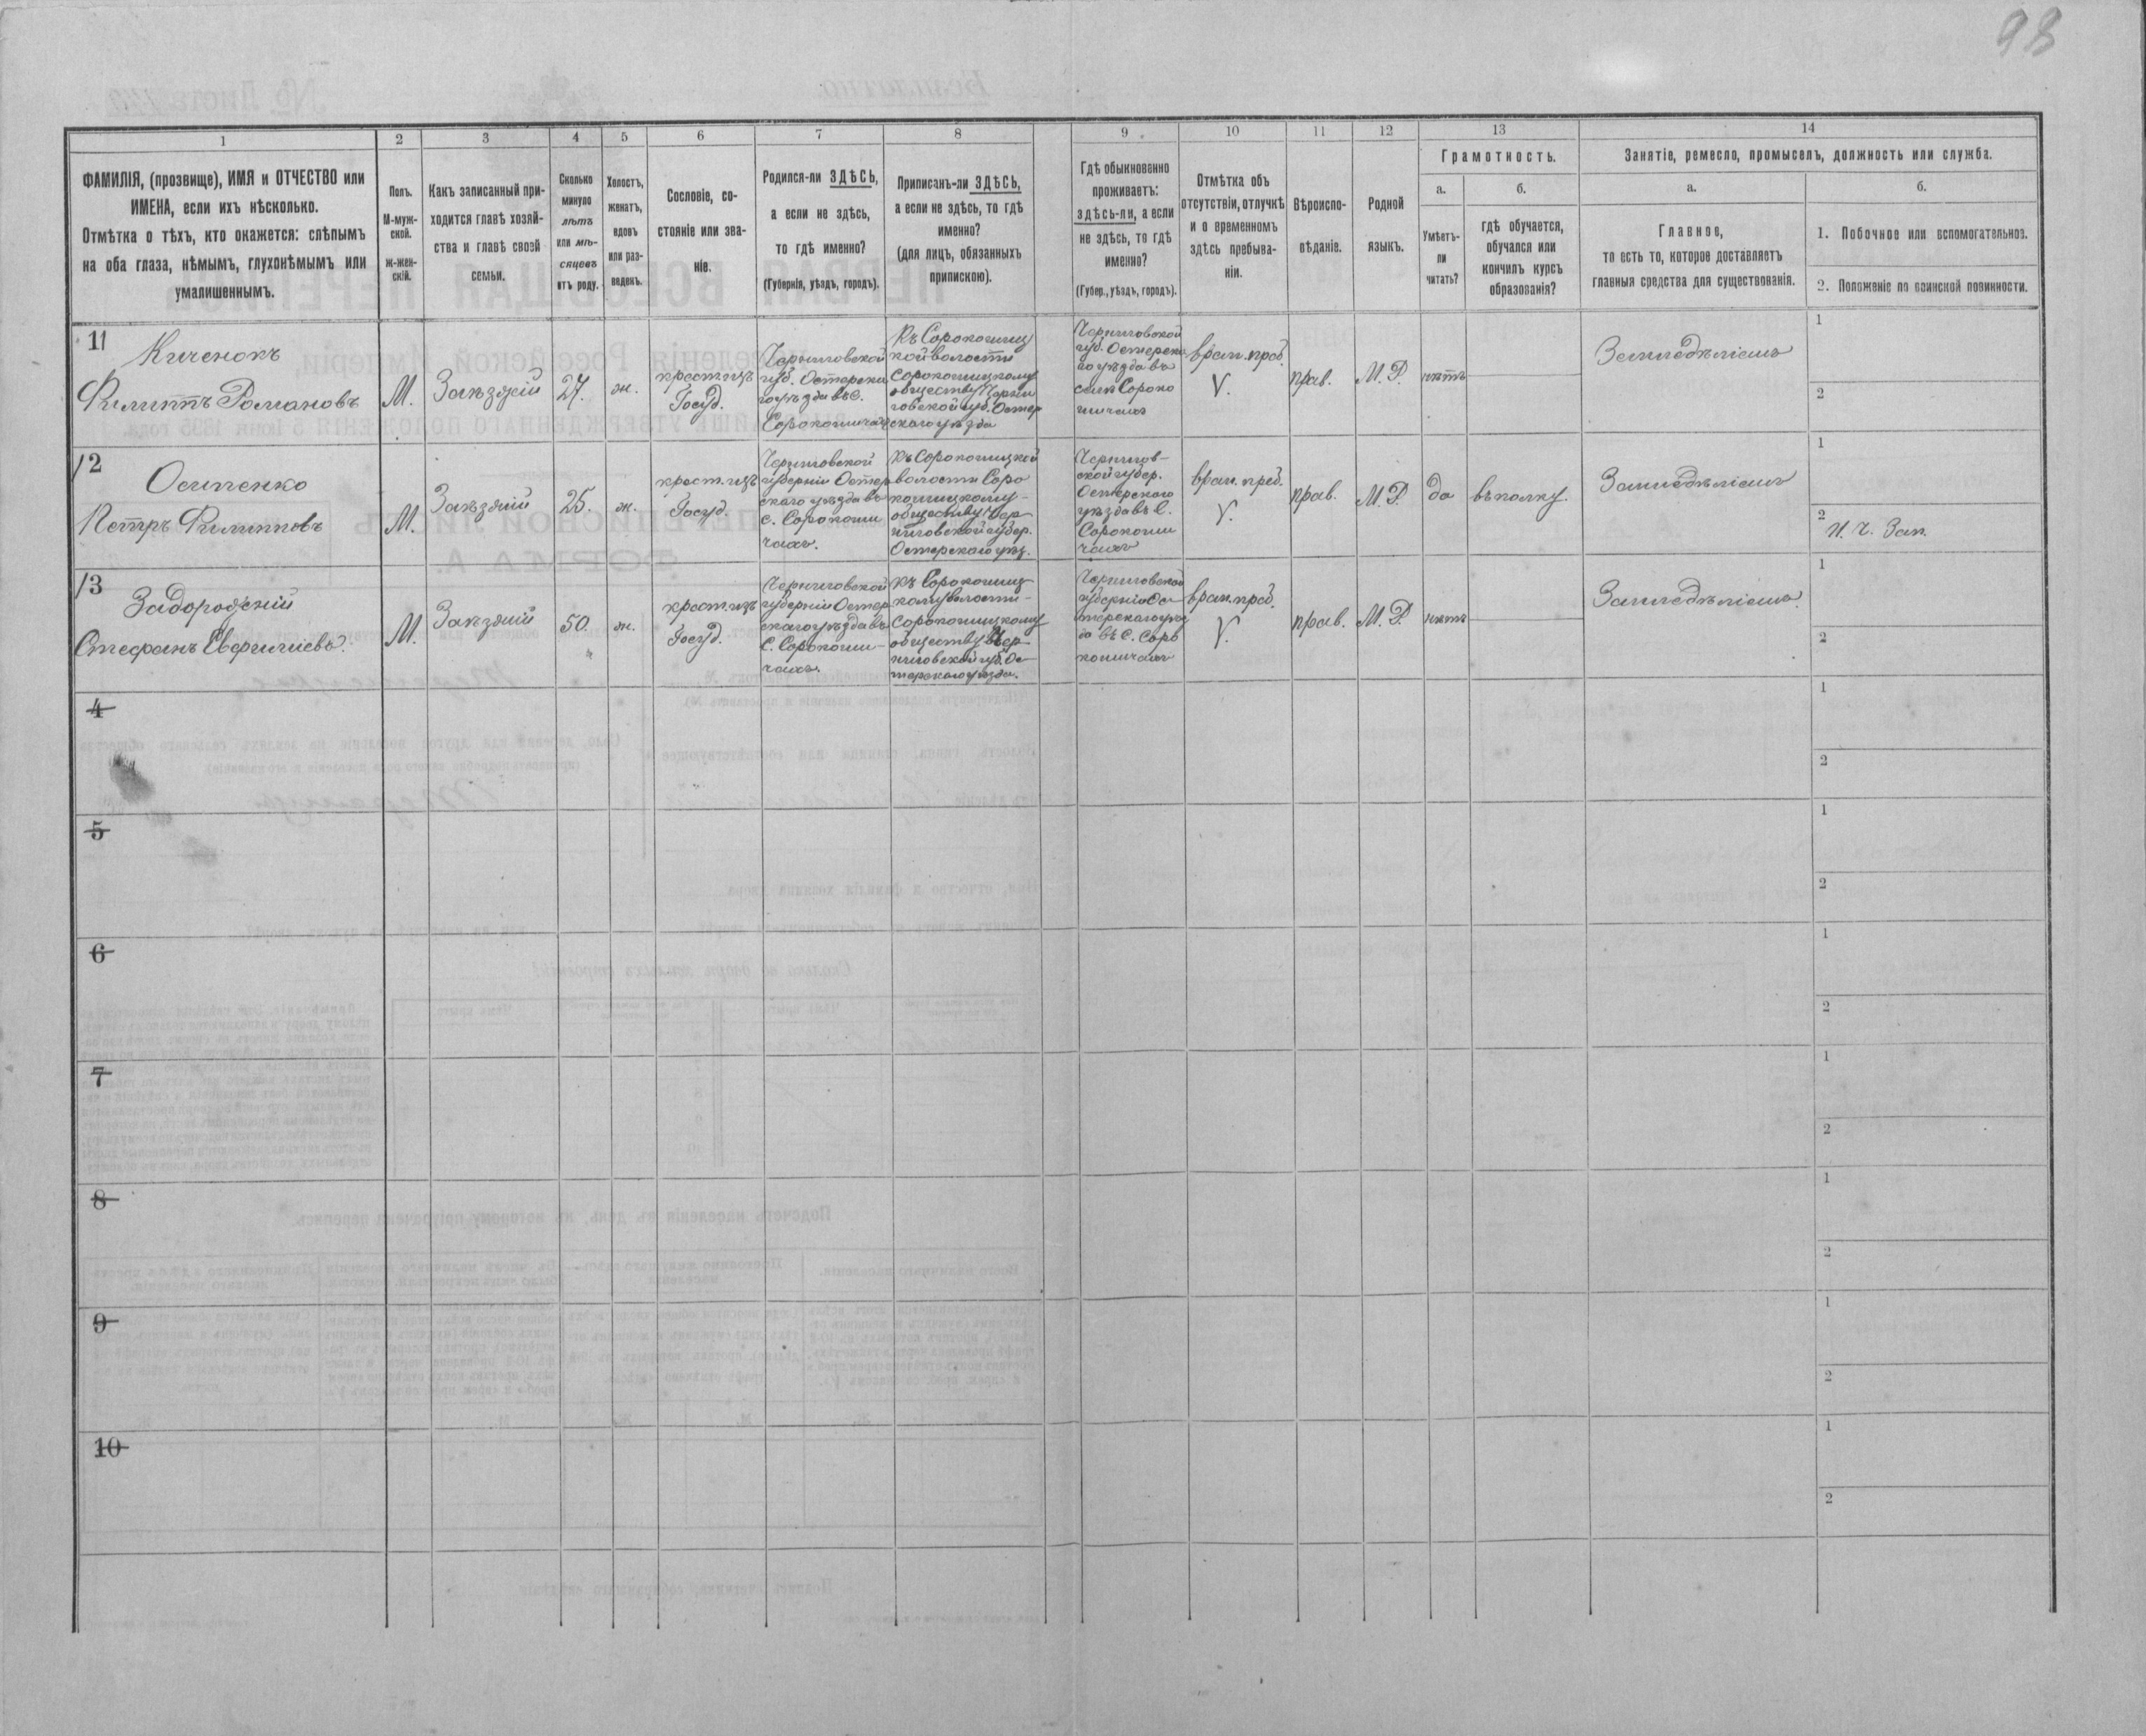 98
1
2
3
4
5
6
7
8
9
10
11
12
13
14
ФАМИЛІЯ, (прозвище), ИМЯ и ОТЧЕСТВО или
ИМЕНА, если ихъ нѣсколько.
Отмѣтка о тѣхъ, кто окажется: слѣпымъ
на оба глаза, нѣмымъ, глухонѣмымъ или
умалишеннымъ.
Полъ.
М-муж-
ской.
ж-жен-
скій.
Какъ записанный при-
ходится главѣ хозяй-
ства и главѣ своей
семьи.
Сколько
минуло
лѣтъ
или мѣ-
сяцевъ
отъ роду.
Холостъ,
женатъ,
вдовъ
или раз-
веденъ.
Сословіе, со-
стояніе или зва-
ніе.
Родился-ли ЗДѢСЬ,
а если не здѣсь,
то гдѣ именно?
(Губернія, уѣздъ, городъ).
Приписанъ-ли ЗДѢСЬ,
а если не здѣсь, то гдѣ
именно?
(для лицъ, обязанныхъ
припискою).
Гдѣ обыкновенно
проживаетъ:
здѣсь-ли, а если
не здѣсь, то гдѣ
именно?
(Губер., уѣздъ, городъ).
Отмѣтка объ
отсутствіи, отлучкѣ
и о временномъ
здѣсь пребыва-
ніи.
Вѣроиспо-
вѣданіе.
Родной
языкъ.
Грамотность.
а.
Умѣетъ-
ли
читать?
б.
гдѣ обучается,
обучался или
кончилъ курсъ
образованія?
Занятіе, ремесло, промыселъ, должность или служба.
а.
Главное,
то есть то, которое доставляетъ
главныя средства для существованія.
б.
1. Побочное или вспомогательное.
2. Положеніе по воинской повинности.
11
Киченокъ
Филиппъ Романовъ
М.
Заѣзжій
27.
ж.
крест. изъ
Госуд.
Черниговской
губ. Остерска
го уѣзда въ с.
Сорокошичахъ
Къ Сорокошиц
кой волости
Сорокошицкому
обществу Черни
говской губ. Остер
скаго уѣзда
Черниговской
губ. Остерска
го уѣзда въ
селѣ Сороко
шичахъ
врем. преб.
V.
прав.
М. Р.
нѣтъ
Земледѣліемъ
1
2
12
Осипенко
Петръ Филипповъ
М.
Заѣзжій
25.
ж.
крест. изъ
Госуд.
Черниговской
губерніи Остер
скаго уѣзда въ
с. Сорокоши
чахъ.
Къ Сорокошицкой
волости Соро
кошицкому
обществу Чер
ниговской губер.
Остерскаго уѣз.
Чернигов-
ской губер.
Остерскаго
уѣзда въ С.
Сорокоши
чахъ
врем. преб.
V.
прав.
М. Р.
да
въ полку.
Земледѣліемъ
1
2
Н. Ч. Зап.
13
Задорожній
Стефанъ Евфиміевъ.
М.
Заѣзжій
50.
ж.
крест. изъ
Госуд.
Черниговской
губерніи Остер
скаго уѣзда въ
С. Сорокоши-
чахъ.
къ Сорокошиц
кому волости-
Сорокошицкому
обществу Чер
ниговской губ. Ос-
терскаго уѣзда.
Черниговской
губерніи Ос-
терскаго уѣз
да въ С. Соро
кошичахъ
врем. преб.
V.
прав.
М. Р.
нѣтъ
Земледѣліемъ.
1
2
4
1
2
5
1
2
6
1
2
7
1
2
8
1
2
9
1
2
10
1
2